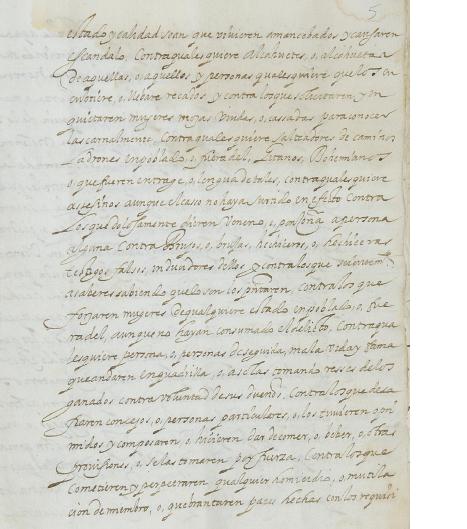 5
estado y calidad sean que vivieren amancebados y causaren
escandalo, Contra quales quiere Alcahuetes, o, alcahuetas
de aquellas, o, aquellos y personas quales quiere que los en
cubriere, o, llebare recados y contra los que solicitaren y in
quietaren mugeres mozas viudas, o, casadas para conocer
las carnalmente, Contra quales quiere salteadores de caminos
Ladrones en poblado, o, fuera del, Gitanos, Bohemianos
o, que fueren en trage, o, lengua de tales, contra quales quiere
asesinos aunque el caso no haya surtido en efecto Contra
Los que dolosamente dieren Veneno, o, ponsoña a persona
alguna Contra Brujos, o, brujas, hechiceros, o, hechiceras
testigos falsos, induzidores dellos y contra los que
asaberes sabiendo que lo son los pntaren, contra los que
forzaren mugeres de qualquiere estado en poblado, o, fue
ra del, aunque no hayan consumado el delito, Contra qua
les quiere persona, o, personas de seguida, mala vida y fama
que andaren en quadrilla, o, a solas tomando reses de los
ganados contra voluntad de sus dueños, Contra los que desa
fiaren concejos, o, personas particulares, o, los tuvieren opri
midos y composaren, o, hizieren dar de comer, o, beber, o, otras
provisiones, o, se las tomaren por fuerza, Contra los que
Cometieren y perpetraren qualquier homicidio, o, mutila
cion de miembro, o, quebrantaren paces hechas con los requisi